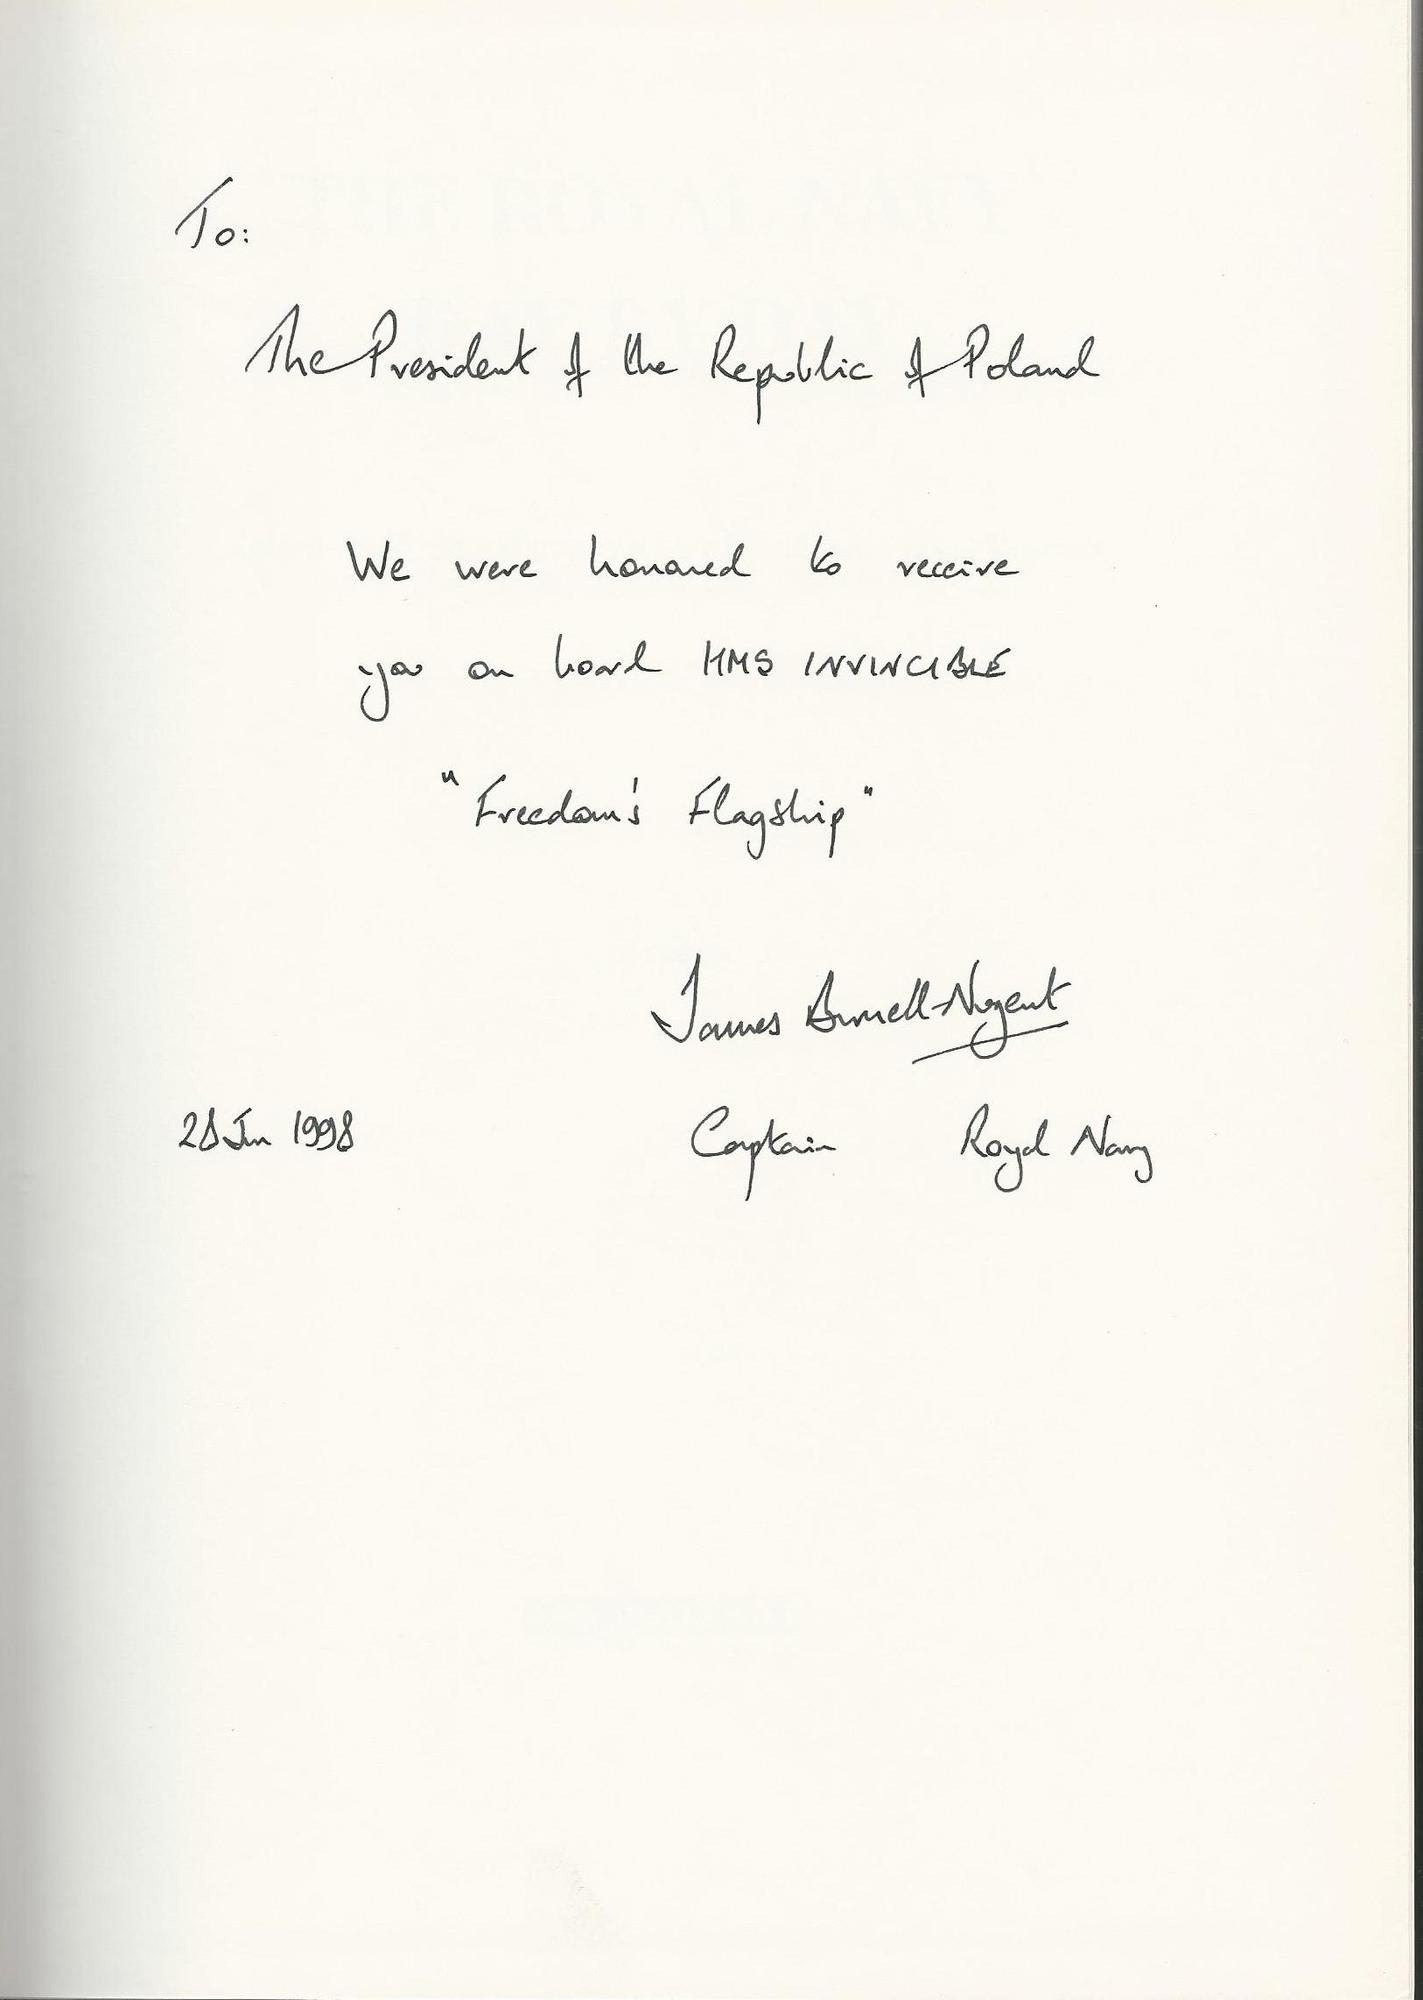 To:
The President of the Republic of Poland
We were honoured to receive
you on board HMS INVINCIBLE
"Freedom's Flagship"
James Burnell-Nugent
28 Jun 1998 Captain Royal Navy